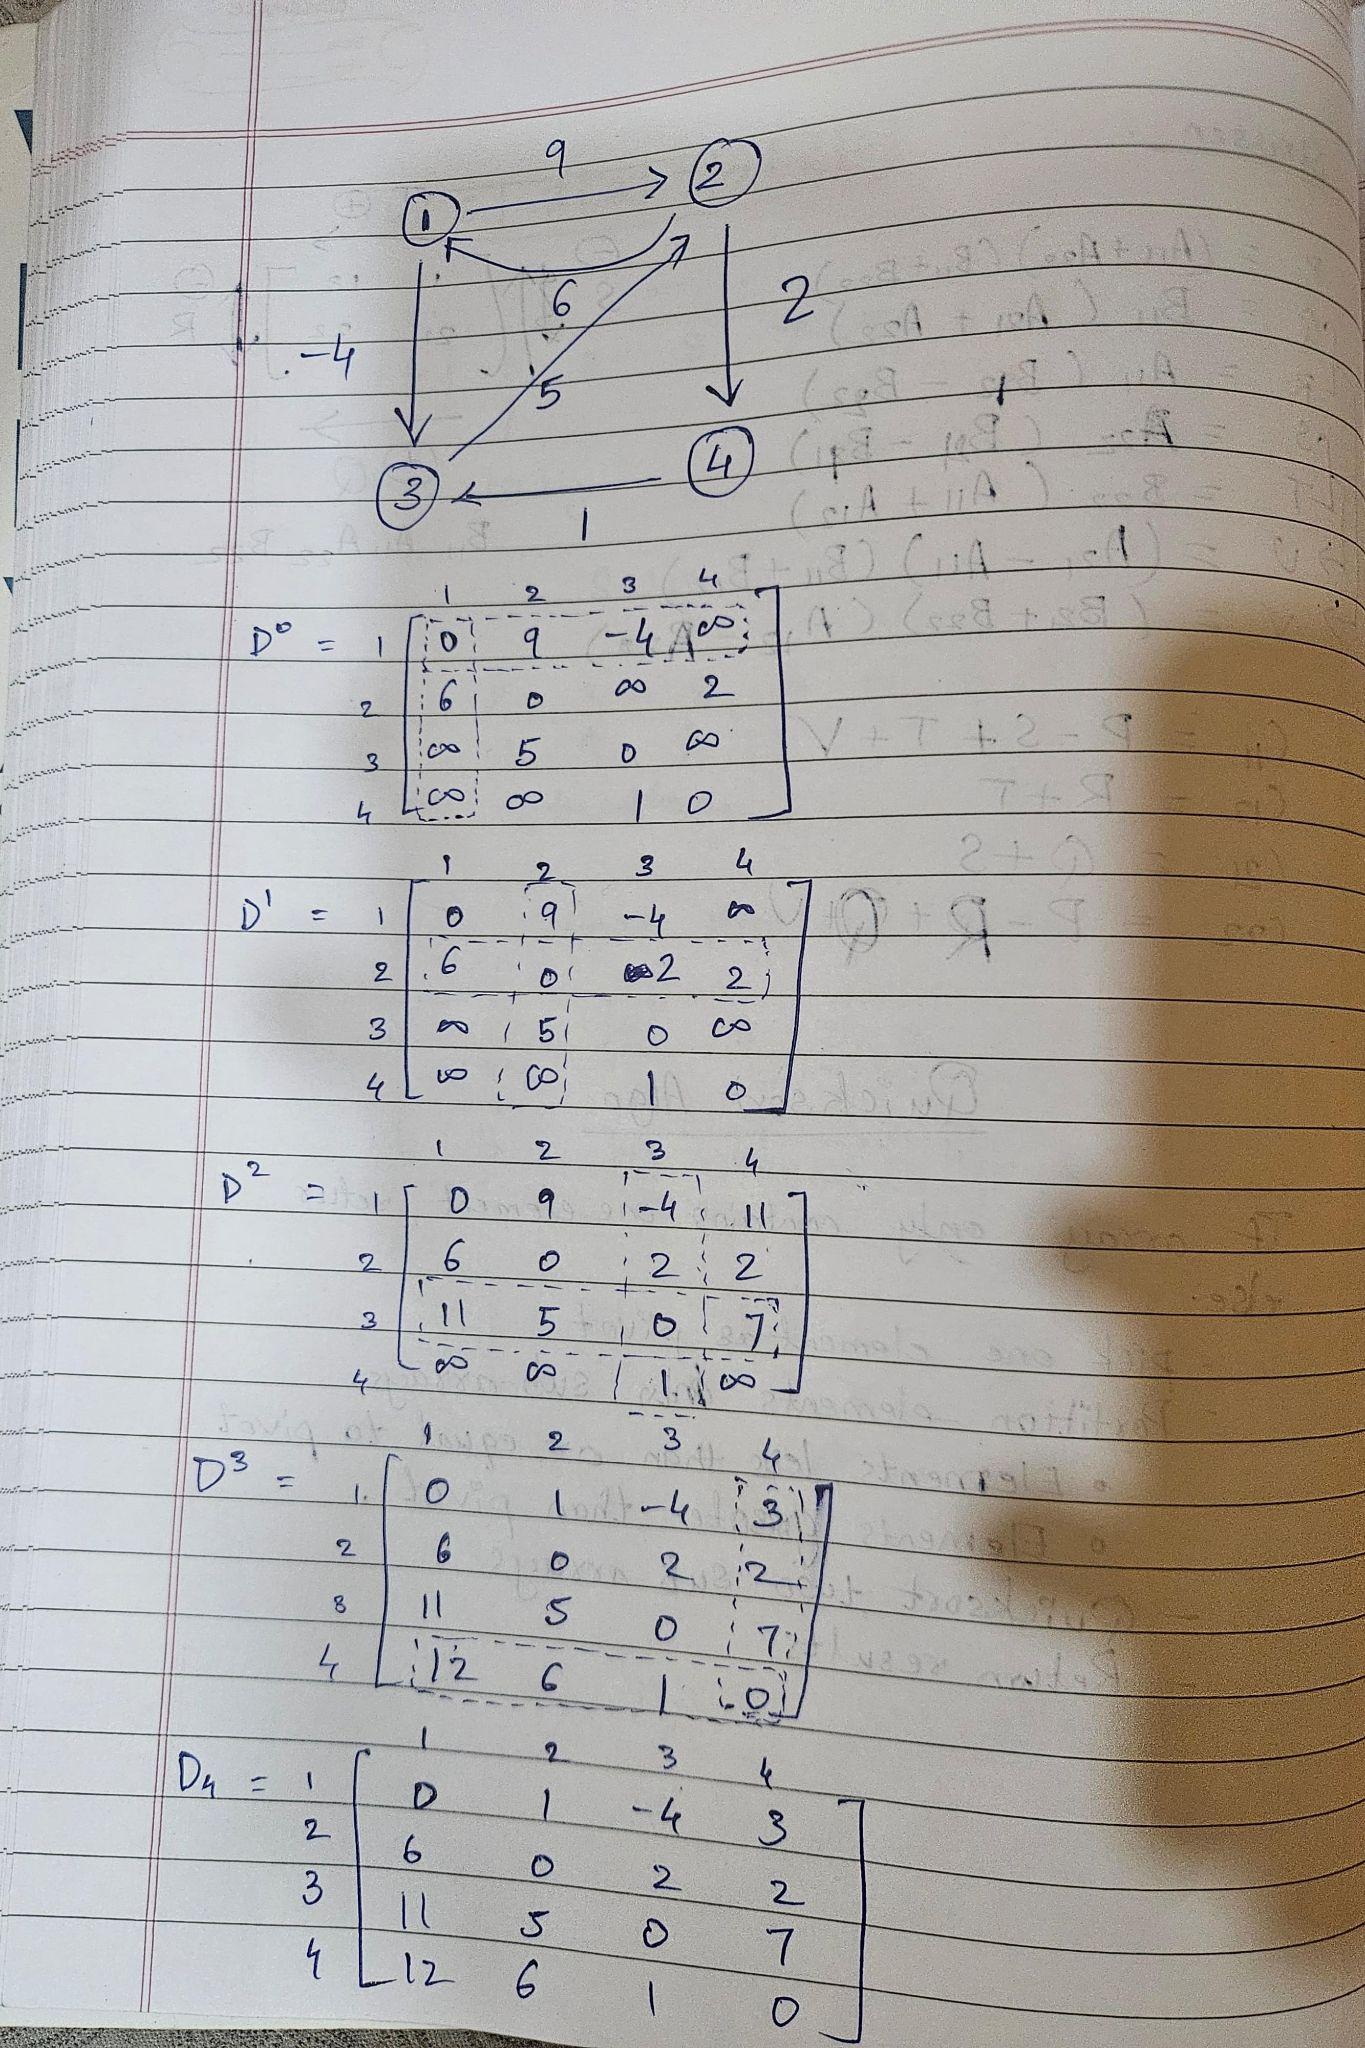 9
1 2
6
-4 2
5
3 4
1
1 2 3 4
D⁰ = 1 0 9 -4 ∞
2 6 0 ∞ 2
3 ∞ 5 0 ∞
4 ∞ ∞ 1 0
1 2 3 4
D¹ = 1 0 9 -4 ∞
2 6 0 2 2
3 ∞ 5 0 ∞
4 ∞ ∞ 1 0
1 2 3 4
D² = 1 0 9 -4 11
2 6 0 2 2
3 11 5 0 7
4 ∞ ∞ 1 ∞
1 2 3 4
D³ = 1 0 1 -4 3
2 6 0 2 2
3 11 5 0 7
4 12 6 1 0
1 2 3 4
D₄ = 1 0 1 -4 3
2 6 0 2 2
3 11 5 0 7
4 12 6 1 0